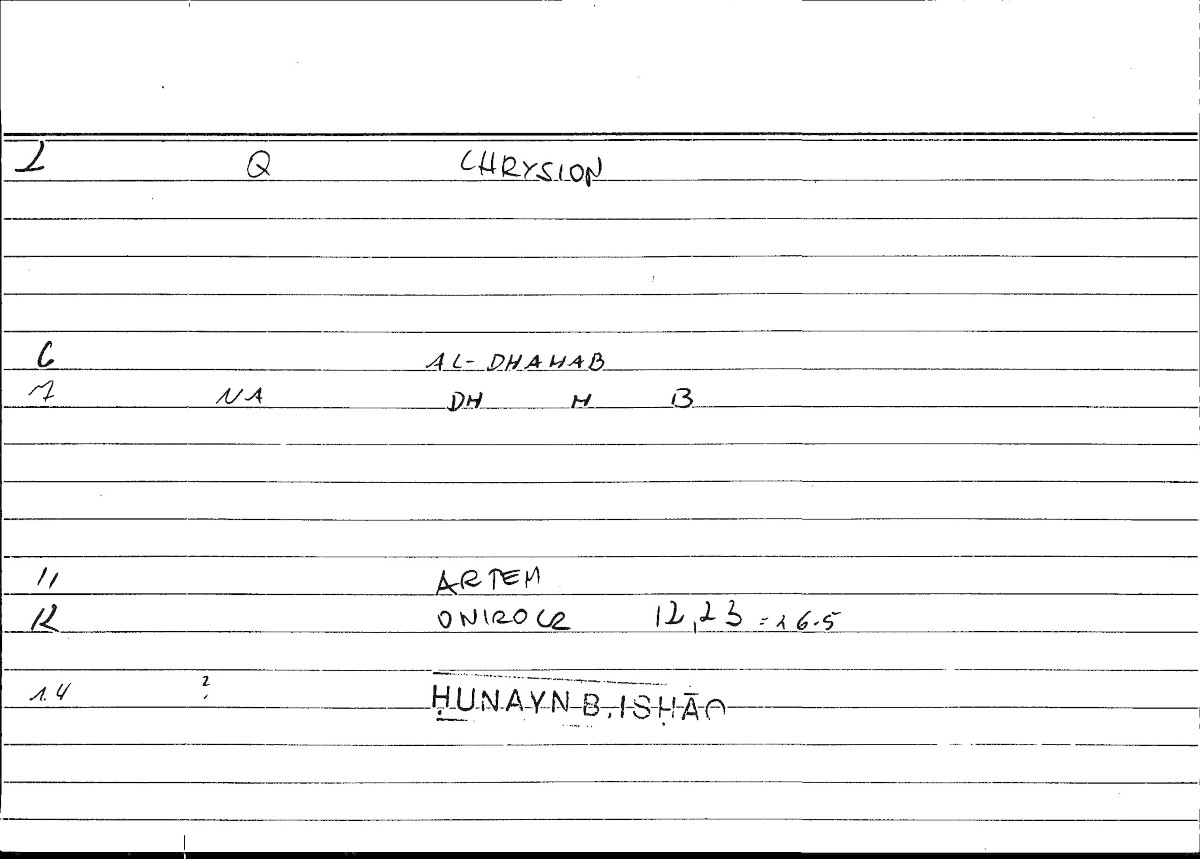 1 Q CHRYSION
6 AL-DHAHAB
7 NA DH H B
11 ARTEM
12 ONIROCR 12,23 = 26.5
14 ? ḤUNAYN B. ISḤĀQ